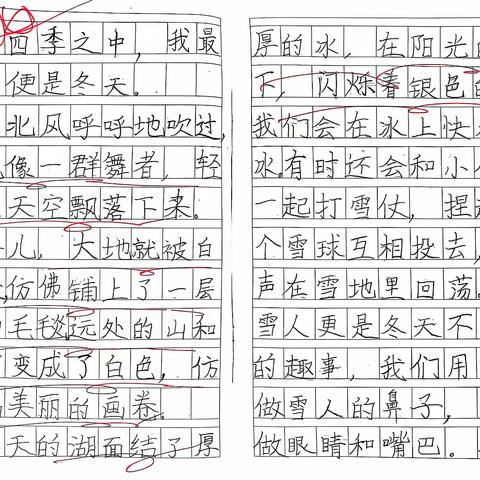 四季之中，我最
便是冬天。
北风呼呼地吹过，
像一群舞者，轻
天空飘落下来。
儿，大地就被白
仿佛铺上了一层
毛毯远处的山和
变成了白色，仿
美丽的画卷。
天的湖面结了厚
厚的冰，在阳光的
下，闪烁着银色的
我们会在冰上快
冰。有时还会和小
一起打雪仗，捏
个雪球互相投去，
声在雪地里回荡。
雪人更是冬天不
的趣事，我们用
做雪人的鼻子，
做眼睛和嘴巴。